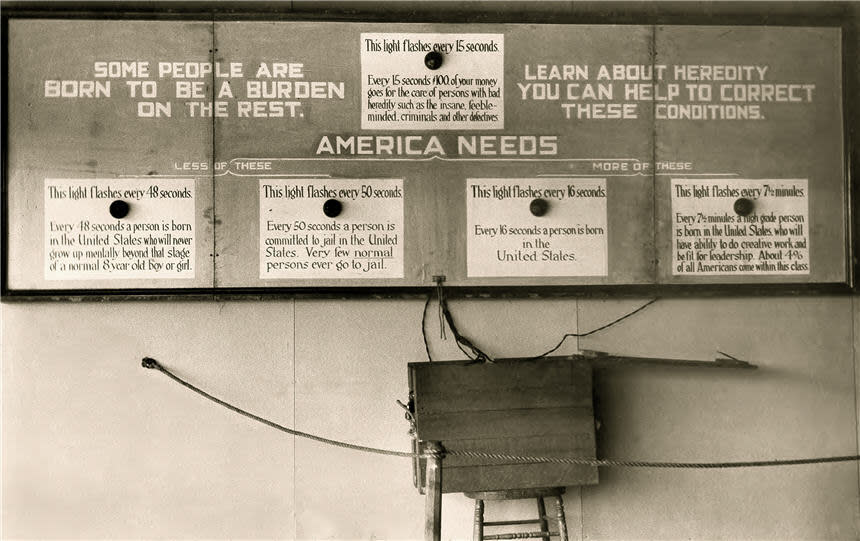 SOME PEOPLE ARE
BORN TO BE A BURDEN
ON THE REST.
This light flashes every 15 seconds.
Every 15 seconds $100. of your money
goes for the care of persons with bad
heredity such as the insane, feeble-
minded, criminals and other defectives
LEARN ABOUT HEREDITY
YOU CAN HELP TO CORRECT
THESE CONDITIONS.
AMERICA NEEDS
LESS OF THESE
MORE OF THESE
This light flashes every 48 seconds.
Every 48 seconds a person is born
in the United States who will never
grow up mentally beyond that stage
of a normal 8 year old boy or girl.
This light flashes every 50 seconds.
Every 50 seconds a person is
committed to jail in the United
States. Very few normal
persons ever go to jail.
This light flashes every 16 seconds.
Every 16 seconds a person is born
in the
United States.
This light flashes every 7½ minutes.
Every 7½ minutes a high grade person
is born in the United States, who will
have ability to do creative work and
be fit for leadership. About 4%
of all Americans come within this class.